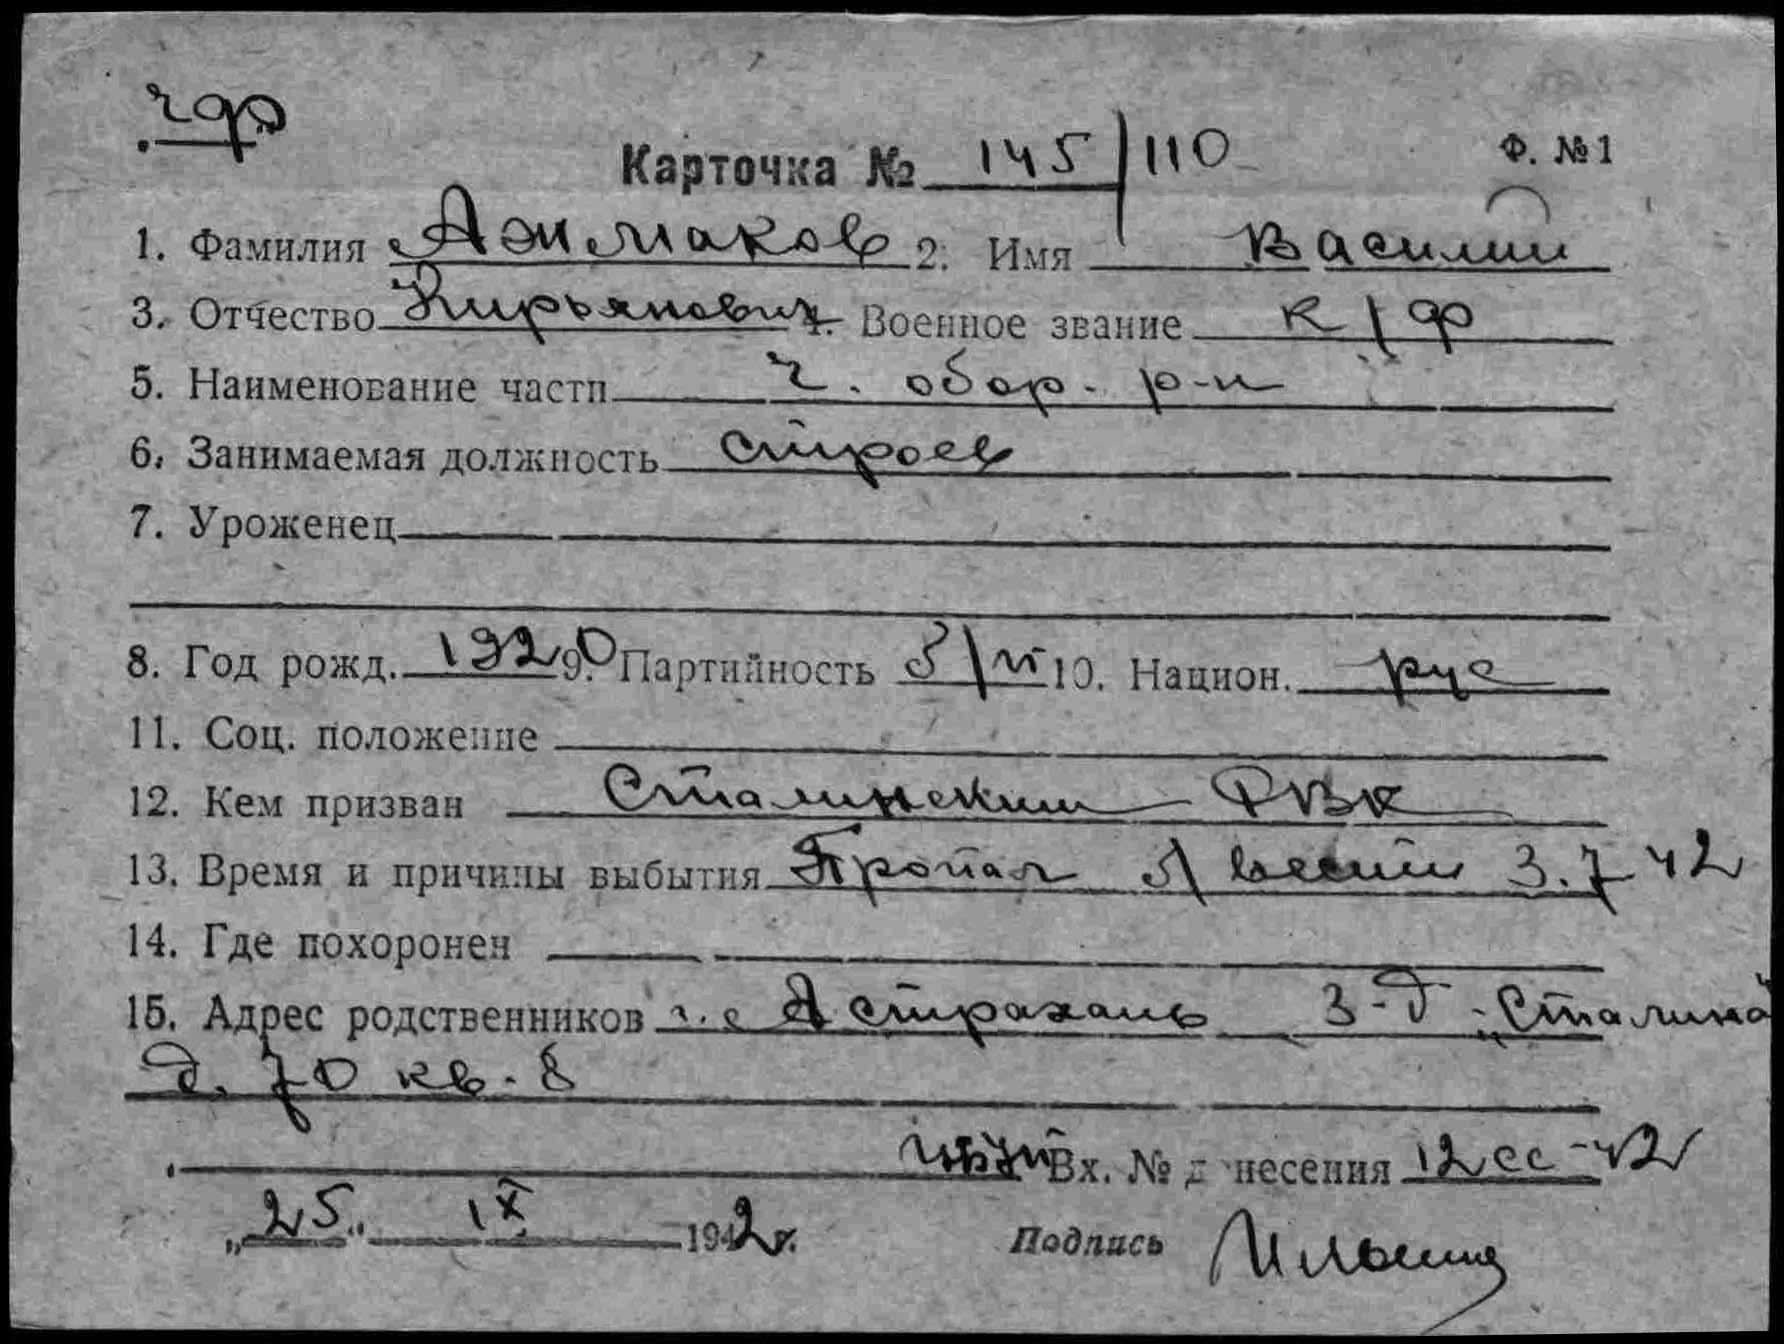 чф
Карточка № 145/110 Ф. №1
1. Фамилия Ажмаков 2. Имя Василий
3. Отчество Кирьянович 4. Военное звание к/ф
5. Наименование части Ч. обор. р-н
6. Занимаемая должность строев
7. Уроженец
8. Год рожд. 1920 9. Партийность б/п 10. Национ. рус
11. Соц. положение
12. Кем призван Сталинским РВК
13. Время и причины выбытия Пропал б/вести 3.7 42
14. Где похоронен
15. Адрес родственников г. Астрахань З-д „Сталина"
д. 70 кв. 8
Вх. № д несения 12сс-42
„25" IX 1942г. Подпись Ильина